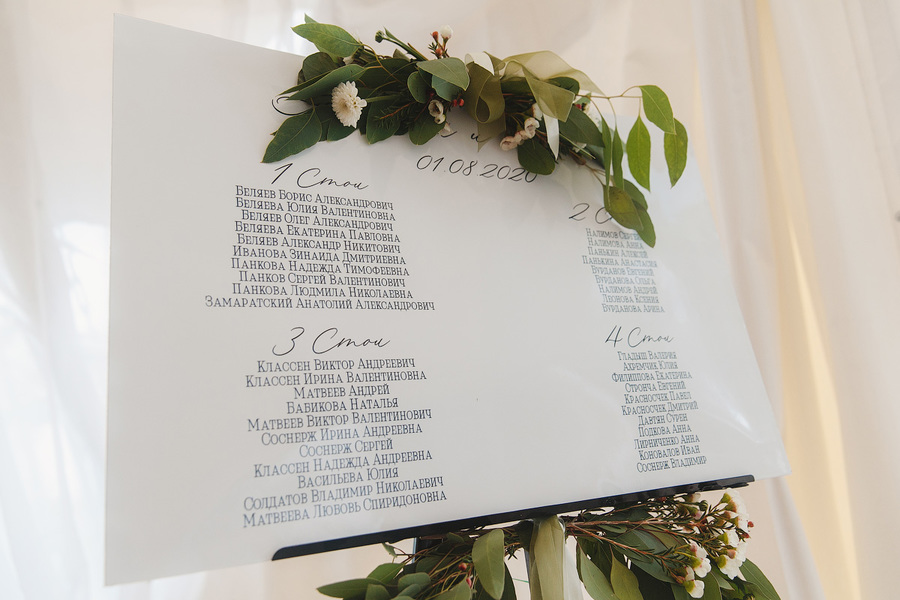 и
01.08.2020
1 Стол
Беляев Борис Александрович
Беляева Юлия Валентиновна
Беляев Олег Александрович
Беляева Екатерина Павловна
Беляев Александр Никитович
Иванова Зинаида Дмитриевна
Панкова Надежда Тимофеевна
Панков Сергей Валентинович
Панкова Людмила Николаевна
Замаратский Анатолий Александрович
2
Налимов Сергей
Налимова Анна
Панькин Алексей
Панькина Анастасия
Бурданов Евгений
Бурданова Ольга
Налимов Андрей
Львовова Ксения
Бурданова Арина
3 Стол
Классен Виктор Андреевич
Классен Ирина Валентиновна
Матвеев Андрей
Бабикова Наталья
Матвеев Виктор Валентинович
Соснерж Ирина Андреевна
Соснерж Сергей
Классен Надежда Андреевна
Васильева Юлия
Солдатов Владимир Николаевич
Матвеева Любовь Спиридоновна
4 Стол
Гладыш Валерия
Ахремчик Юлия
Филиппова Екатерина
Стронча Евгений
Красносчек Павел
Красносчек Дмитрий
Давтян Сурен
Попкова Анна
Лирниченко Анна
Коновалов Иван
Соснерж Владимир